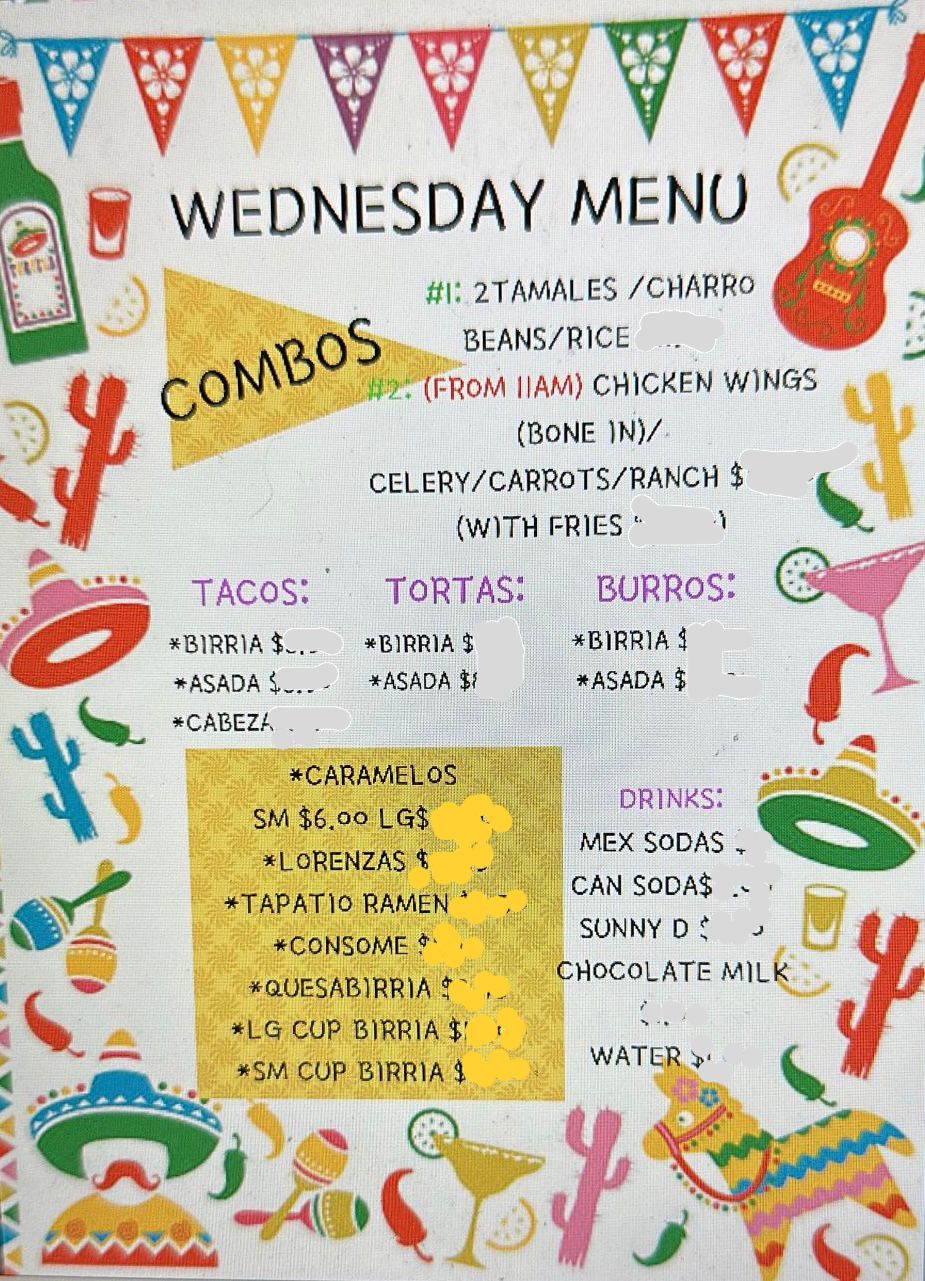 WEDNESDAY MENU
COMBOS
#1: 2TAMALES /CHARRO
BEANS/RICE
#2: (FROM 11AM) CHICKEN WINGS
(BONE IN)/
CELERY/CARROTS/RANCH $
(WITH FRIES )
TACOS:
*BIRRIA $
*ASADA $
*CABEZA
TORTAS:
*BIRRIA $
*ASADA $
BURROS:
*BIRRIA $
*ASADA $
*CARAMELOS
SM $6.00 LG$
*LORENZAS $
*TAPATIO RAMEN
*CONSOME $
*QUESABIRRIA $
*LG CUP BIRRIA $
*SM CUP BIRRIA $
DRINKS:
MEX SODAS
CAN SODA$
SUNNY D $
CHOCOLATE MILK
$
WATER $